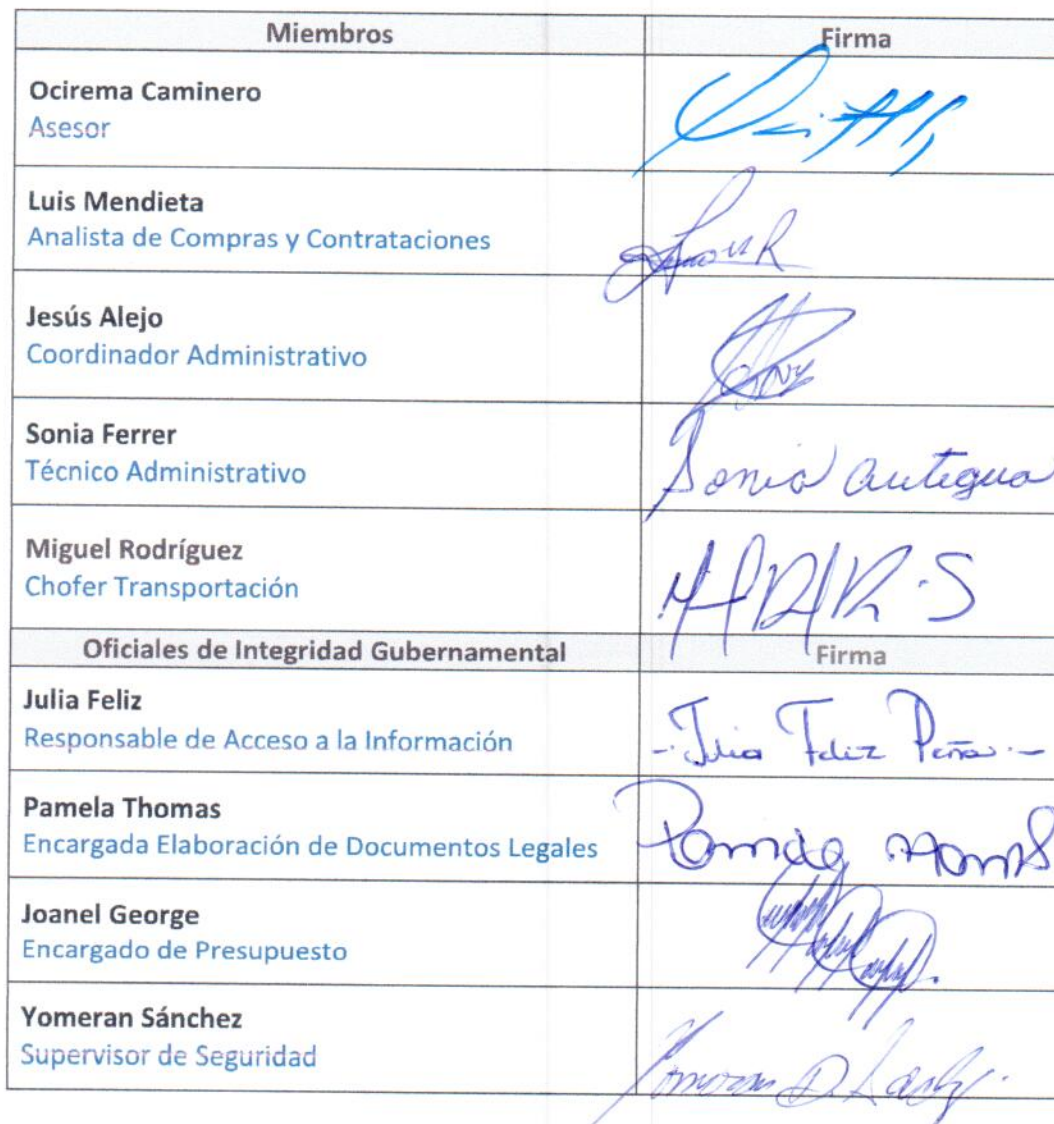 Miembros Firma
Ocirema Caminero
Asesor
Luis Mendieta
Analista de Compras y Contrataciones
Jesús Alejo
Coordinador Administrativo
Sonia Ferrer
Técnico Administrativo
Sonia Antigua
Miguel Rodríguez
Chofer Transportación
Oficiales de Integridad Gubernamental Firma
Julia Feliz
Responsable de Acceso a la Información
-Julia Feliz Peña.-
Pamela Thomas
Encargada Elaboración de Documentos Legales
Joanel George
Encargado de Presupuesto
Yomeran Sánchez
Supervisor de Seguridad